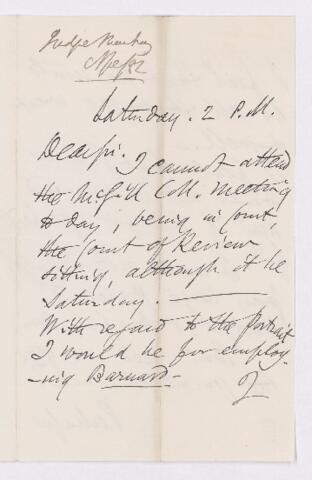 Judge
Saturday. 2 P.M.
Dear Sir. I cannot attend
the McGill Coll. meeting
to day, being in Court,
the Court of Review
sitting, although it be
Saturday. —
With regard to the portrait
I would be for employ-
-ing Barnard -